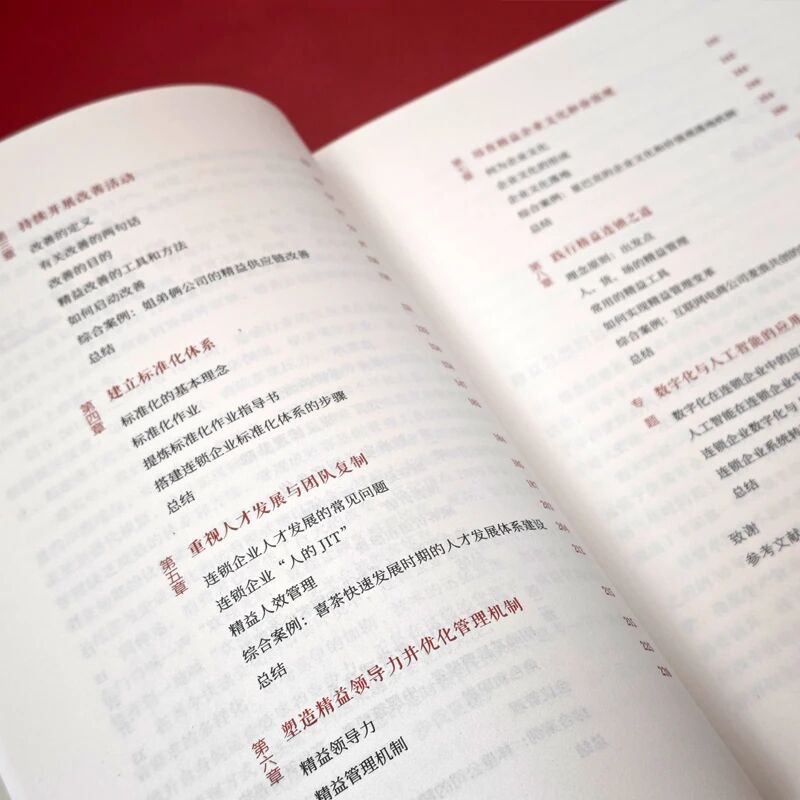 第三章
持续开展改善活动
改善的定义
有关改善的两句话
改善的目的
精益改善的工具和方法
如何启动改善
综合案例：姐弟俩公司的精益供应链改善
总结
第四章
建立标准化体系
标准化的基本理念
标准化作业
提炼标准化作业指导书
搭建连锁企业标准化体系的步骤
总结
第五章
重视人才发展与团队复制
连锁企业人才发展的常见问题
连锁企业“人的JIT”
精益人效管理
综合案例：喜茶快速发展时期的人才发展体系建设
总结
第六章
塑造精益领导力并优化管理机制
精益领导力
精益管理机制
第七章
培育精益企业文化和价值观
何为企业文化
企业文化的形成
企业文化落地
综合案例：星巴克的企业文化和价值观落地机制
总结
第八章
践行精益连锁之道
理念原则：出发点
人、货、场的精益管理
常用的精益工具
如何实现精益管理变革
综合案例：互联网电商公司家族共创的
总结
专题
数字化与人工智能的应用
数字化在连锁企业中的应
人工智能在连锁企业中
连锁企业数字化与
连锁企业系统转
总结
致谢
参考文献